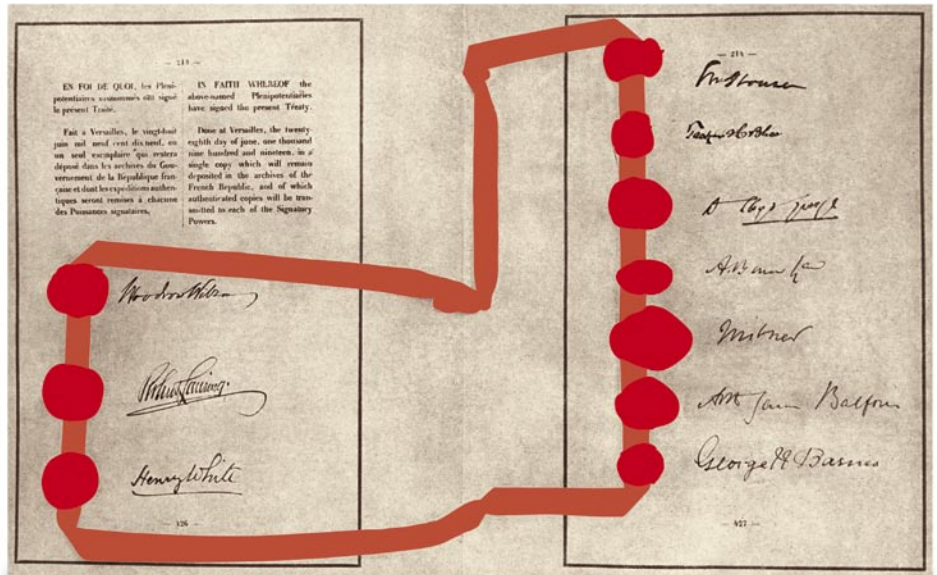 EN FOI DE QUOI, les Pléni-
potentiaires susnommés ont signé
le présent Traité.
Fait à Versailles, le vingt-huit
juin mil neuf cent dix-neuf, en
un seul exemplaire qui restera
déposé dans les archives du Gou-
vernement de la République fran-
çaise et dont les expéditions authen-
tiques seront remises à chacune
des Puissances signataires.
IN FAITH WHEREOF the
above-named Plenipotentiaries
have signed the present Treaty.
Done at Versailles, the twenty-
eighth day of june, one thousand
nine hundred and nineteen, in a
single copy which will remain
deposited in the archives of the
French Republic, and of which
authenticated copies will be tran-
smitted to each of the Signatory
Powers.
Woodrow Wilson
Robert Lansing.
Henry White
— 426 —
— 214 —
House
Tasker H Bliss
D Lloyd George
A. Bonar Law
Milner
Balfour
George N Barnes
— 427 —